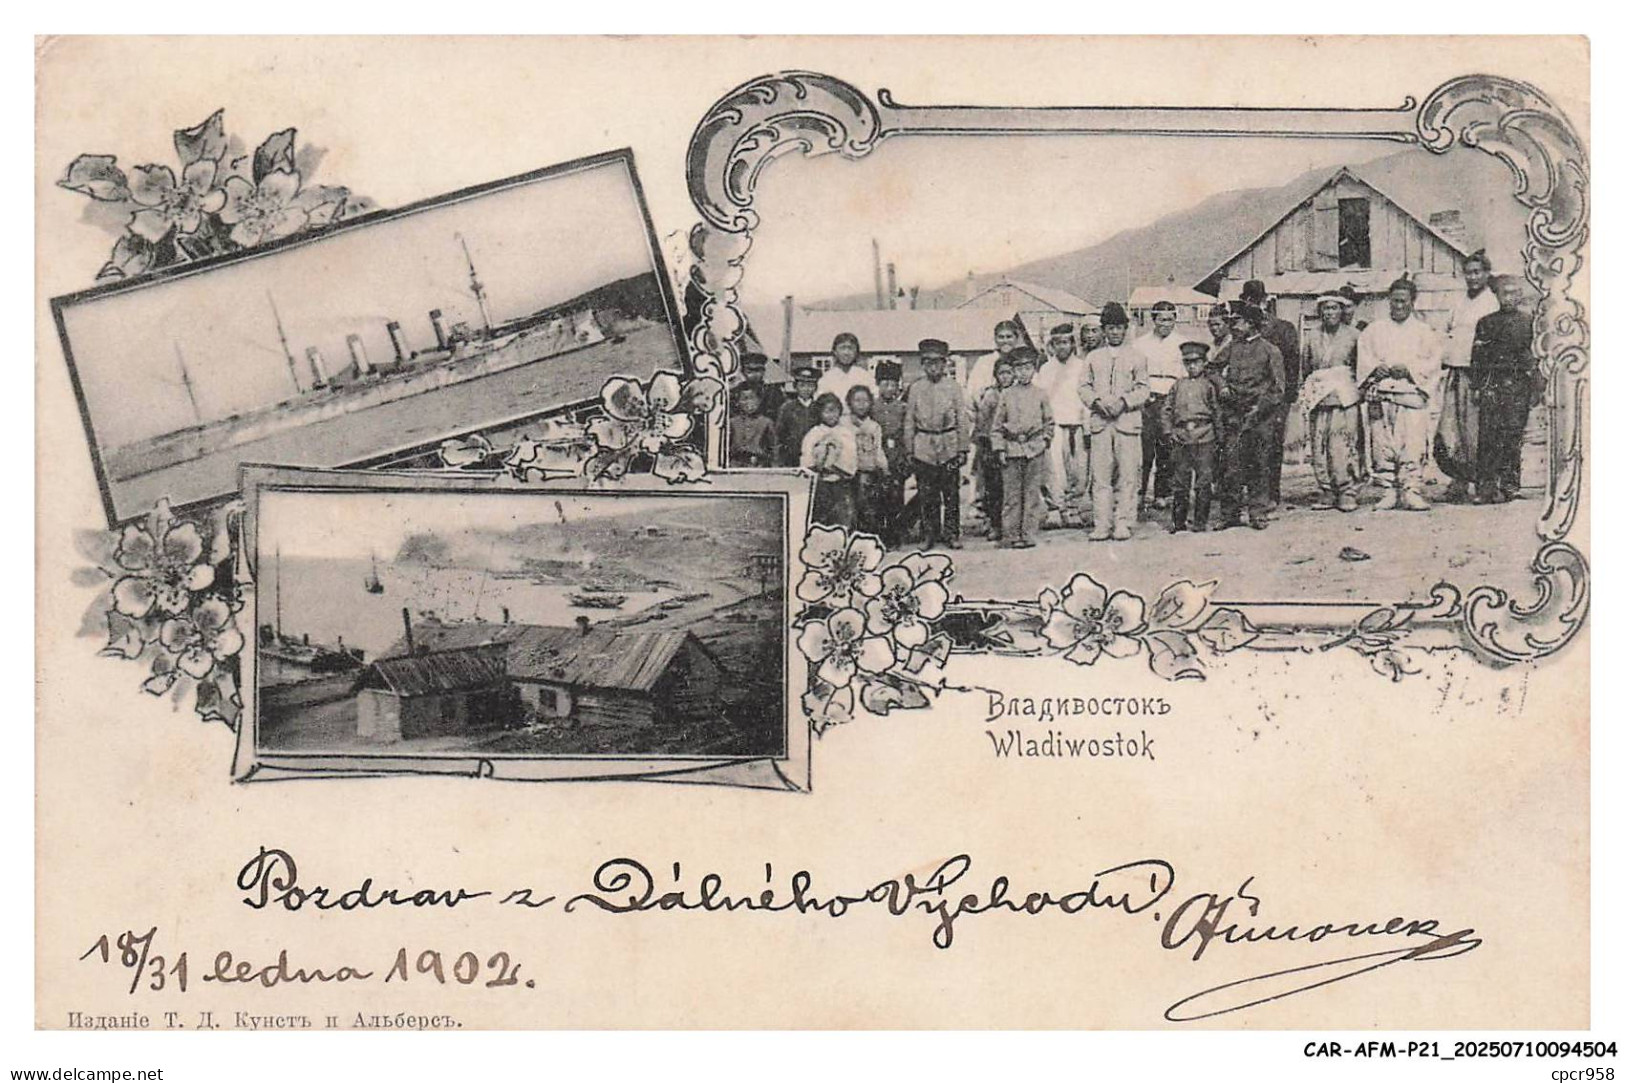 Владивостокъ
Wladiwostok
Pozdrav z Dálného Východu!
18/31 ledna 1902.
Изданіе Т. Д. Кунстъ и Альберсъ.
CAR-AFM-P21_20250710094504
delcampe.net
cpcr958